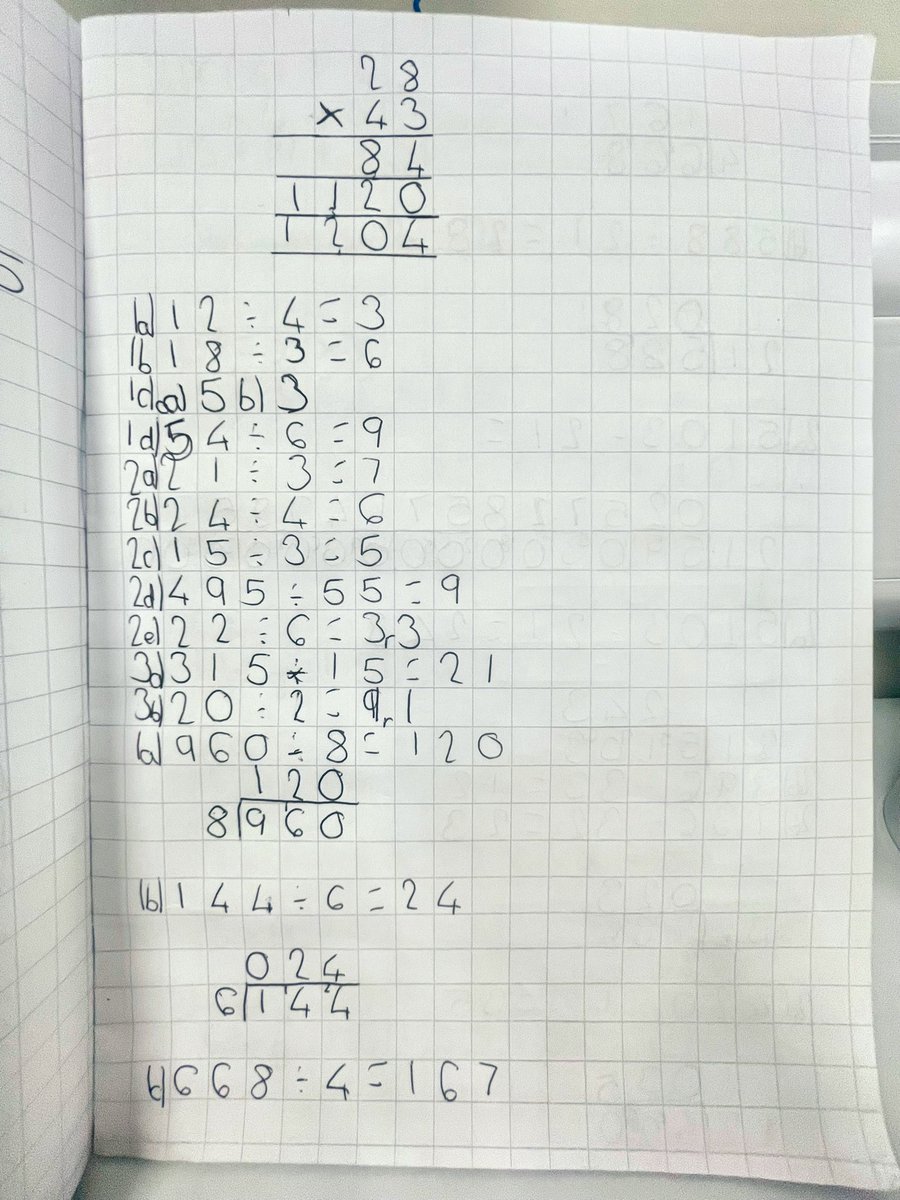 28
× 43
84
1120
1204
1a) 12 ÷ 4 = 3
1b 18 ÷ 3 = 6
1c a) 5 b) 3
1d) 54 ÷ 6 = 9
2a) 21 ÷ 3 = 7
2b) 24 ÷ 4 = 6
2c) 15 ÷ 3 = 5
2d) 495 ÷ 55 = 9
2e) 22 ÷ 6 = 3r3
3a) 315 ÷ 15 = 21
3b) 20 ÷ 2 = 9r1
1a) 960 ÷ 8 = 120
120
8)960
1b) 144 ÷ 6 = 24
024
6)144
c) 668 ÷ 4 = 167